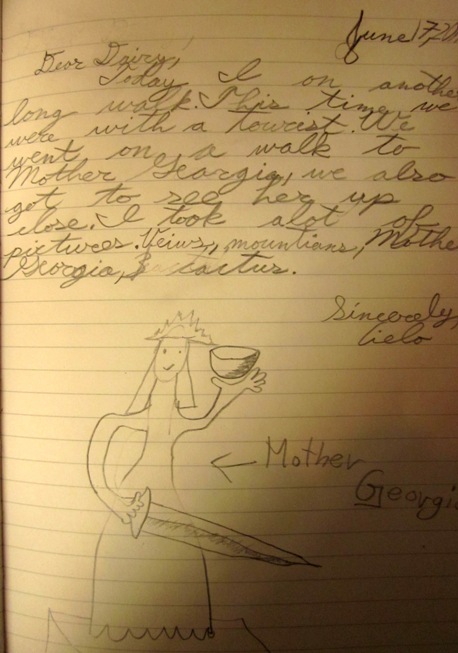 June 17, 20
Dear Dairy,
Today I on another
long walk. This time we
were with a tourist. We
went on a walk to
Mother Georgia, we also
got to see her up
close. I took alot of
pictures. Veiws, mountians, Mothe
Georgia, cactus.
Sincerely,
Cielo
Mother
Georgia